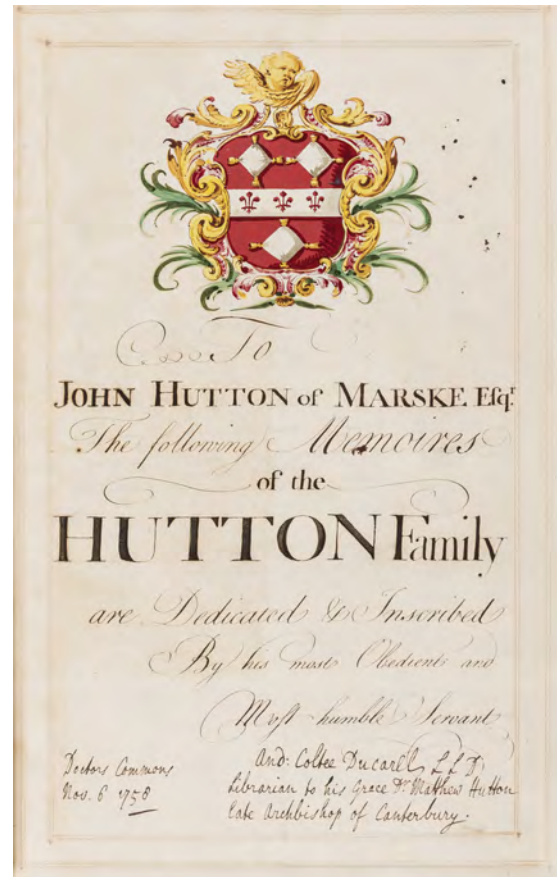 To
JOHN HUTTON of MARSKE Esqr.
The following Memoires
of the
HUTTON Family
are Dedicated & Inscribed
By his most Obedient and
Most humble Servant
And: Coltee Ducarel L L D.
Librarian to his Grace Dr. Matthew Hutton
late Archbishop of Canterbury.
Doctors Commons
Nov. 6 1758